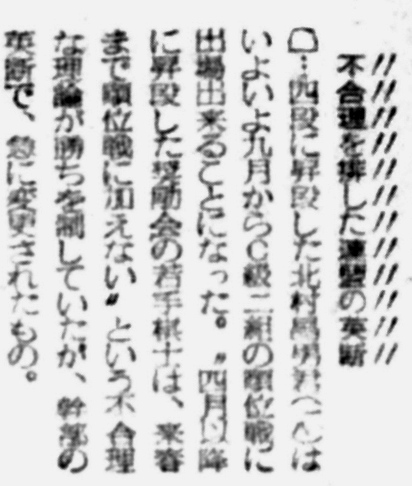 不合理を排した連盟の英断
…四段に昇段した北村昌男君は
いよいよ九月からC級二組の順位戦に
出場出来ることになった。〝四月以降
に昇段した奨励会の若手棋士は、来春
まで順位戦に加えない〟という不合理
な理論が勝ちを制していたが、幹部の
英断で、急に変更されたもの。